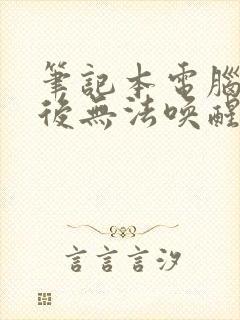 筆記本電腦
後無法喚醒
言言言汐